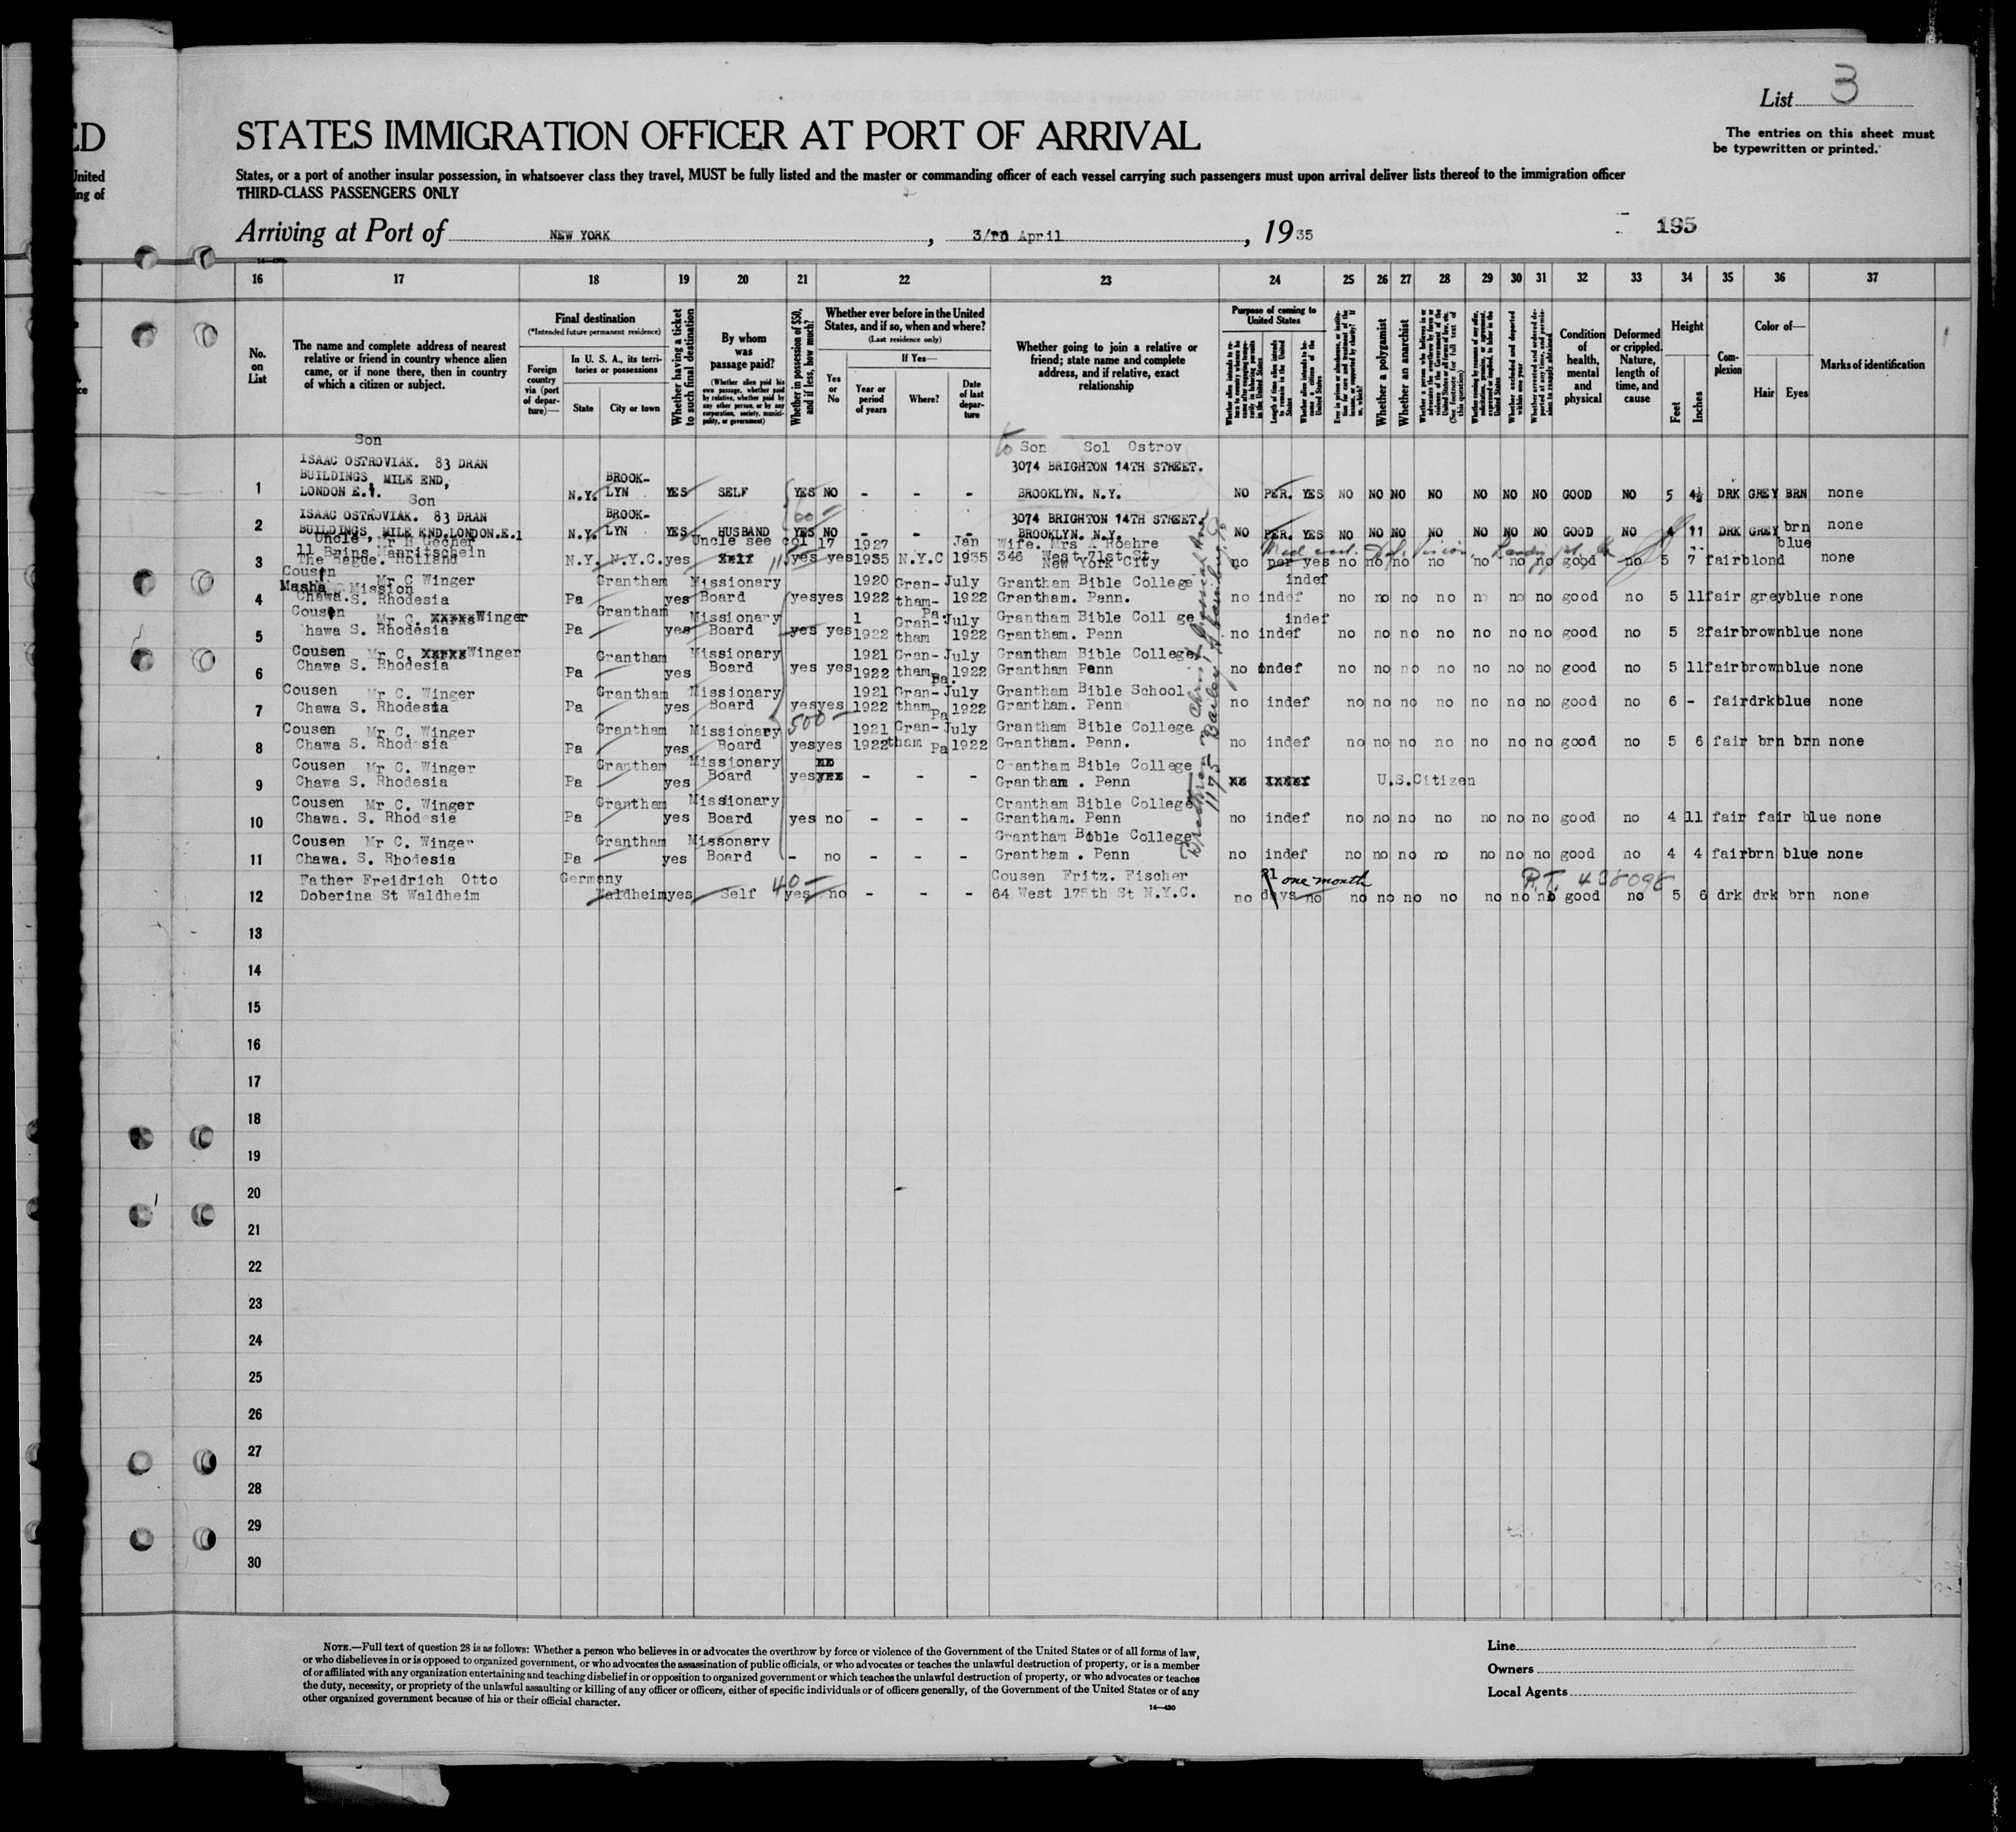 List 3
The entries on this sheet must
be typewritten or printed.
ED
STATES IMMIGRATION OFFICER AT PORT OF ARRIVAL
United
ing of
States, or a port of another insular possession, in whatsoever class they travel, MUST be fully listed and the master or commanding officer of each vessel carrying such passengers must upon arrival deliver lists thereof to the immigration officer
THIRD-CLASS PASSENGERS ONLY
Arriving at Port of NEW YORK, 3/RD April, 1935
195
16 17 18 19 20 21 22 23 24 25 26 27 28 29 30 31 32 33 34 35 36 37
No. on List
The name and complete address of nearest
relative or friend in country whence alien
came, or if none there, then in country
of which a citizen or subject.
Final destination
(*Intended future permanent residence)
Foreign country via (port of departure)—
In U. S. A., its territories or possessions
State
City or town
Whether having a ticket to such final destination
By whom was passage paid?
(Whether alien paid his own passage, whether paid by relative, whether paid by any other person, or by any corporation, society, municipality, or government)
Whether in possession of $50, and if less, how much?
Whether ever before in the United States, and if so, when and where?
(Last residence only)
Yes or No
If Yes—
Year or period of years
Where?
Date of last departure
Whether going to join a relative or
friend; state name and complete
address, and if relative, exact
relationship
Purpose of coming to United States
Whether a polygamist
Whether an anarchist
Condition of health, mental and physical
Deformed or crippled. Nature, length of time, and cause
Height
Feet
Inches
Complexion
Color of—
Hair
Eyes
Marks of identification
Son
to Son Sol Ostrov
ISAAC OSTROVIAK. 83 DRAN
3074 BRIGHTON 14TH STREET.
BUILDINGS, MILE END,
BROOK-
1 LONDON E.1. N.Y. LYN YES SELF YES NO - - - BROOKLYN. N.Y. NO PER. YES NO NO NO NO NO NO NO GOOD NO 5 4½ DRK GREY BRN none
Son
ISAAC OSTROVIAK. 83 DRAN BROOK- 3074 BRIGHTON 14TH STREET.
2 BUILDINGS, MILE END.LONDON.E.1 N.Y. LYN YES HUSBAND YES NO - - - BROOKLYN. N.Y. NO PER. YES NO NO NO NO NO NO NO GOOD NO 4 11 DRK GREY brn none
Uncle, Mr H Uecher Uncle see col 17 1927 Jan Wife. Mrs A Roehre blue
3 The Hague. Holland N.Y. N.Y.C. yes Self yes yes 1935 N.Y.C 1935 346 West 71st St. New York City no per yes no no no no no no no good no 5 7 fair blond none
Cousen Mr C Winger Grantham Missionary 1920 Gran- July Grantham Bible College indef
Mission
4 Chawa.S. Rhodesia Pa yes Board yes yes 1922 tham- 1922 Grantham. Penn. no indef no no no no n no no good no 5 11 fair grey blue none
Cousen Mr C. xxxxx Winger Grantham Missionary 1 Gran- Pa. July Grantham Bible Coll ge indef
5 Chawa S. Rhodesia Pa yes Board yes yes 1922 tham 1922 Grantham. Penn no indef no no no no no no no good no 5 2 fair brown blue none
Cousen Mr C. xxxxx Winger Grantham Missionary 1921 Gran- July Grantham Bible College
6 Chawa S. Rhodesia Pa yes Board yes yes 1922 tham Pa. 1922 Grantham Penn no indef no no no no no no no good no 5 11 fair brown blue none
Cousen Mr C. Winger Grantham Missionary 1921 Gran- July Grantham Bible School
7 Chawa S. Rhodesia Pa yes Board yes yes 1922 tham Pa 1922 Grantham. Penn no indef no no no no no no no good no 6 - fair drk blue none
500-
Cousen Mr C. Winger Grantham Missionary 1921 Gran- July Grantham Bible College
8 Chawa S. Rhodesia Pa yes Board yes yes 1922 tham Pa 1922 Grantham. Penn. no indef no no no no no no no good no 5 6 fair brn brn none
Cousen Mr C. Winger Grantham Missionary Grantham Bible College
9 Chawa S. Rhodesia Pa yes Board yes - - - Grantham . Penn U.S.Citizen
Cousen Mr C. Winger Grantham Missionary Grantham Bible College
10 Chawa. S. Rhodesia Pa yes Board yes no - - - Grantham. Penn no indef no no no no no no no good no 4 11 fair fair blue none
Cousen Mr C. Winger Grantham Missonary Grantham Bible College
11 Chawa. S. Rhodesia Pa yes Board - no - - - Grantham . Penn no indef no no no no no no no good no 4 4 fair brn blue none
Father Freidrich Otto Germany 40- Cousen Fritz. Fischer 21 one month P.T. 438098
12 Doberina St Waldheim Waldheim yes Self yes no - - - 64 West 175th St N.Y.C. no days no no no no no no no no good no 5 6 drk drk brn none
13
14
15
16
17
18
19
20
21
22
23
24
25
26
27
28
29
30
NOTE.—Full text of question 28 is as follows: Whether a person who believes in or advocates the overthrow by force or violence of the Government of the United States or of all forms of law,
or who disbelieves in or is opposed to organized government, or who advocates the assassination of public officials, or who advocates or teaches the unlawful destruction of property, or is a member
of or affiliated with any organization entertaining and teaching disbelief in or opposition to organized government or which teaches the unlawful destruction of property, or who advocates or teaches
the duty, necessity, or propriety of the unlawful assaulting or killing of any officer or officers, either of specific individuals or of officers generally, of the Government of the United States or of any
other organized government because of his or their official character.
14—430
Line
Owners
Local Agents